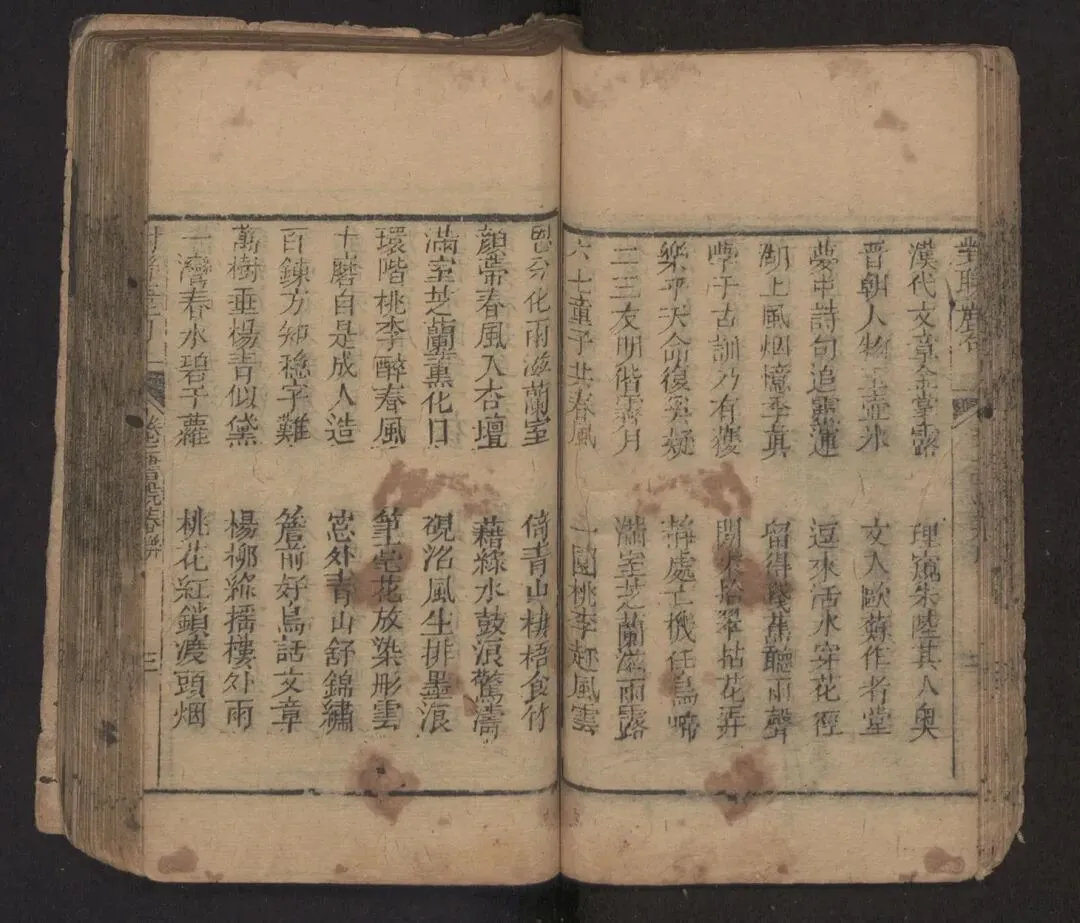 對聯
漢代文章金掌露 理窺朱陸其人奥
晉朝人物玉壺氷 文入歐蘇作者堂
夢中詩句追靈運 逗來活水穿花徑
湖上風烟憶季真 留得殘蕉聽雨聲
學于古訓乃有獲 閒來拾翠拈花弄
樂乎天命復奚疑 靜處亡機任鳥啼
二三友明偕霽月 滿室芝蘭滋雨露
六七童子共春風 一園桃李赶風雲
分化雨滋蘭室 倚青山棲梧食竹
顔帶春風入杏壇 藉綠水鼓浪驚濤
滿室芝蘭薰化日 硯沼風生排墨浪
環階桃李醉春風 筆花放染形雲
十磨自是成人造 窓外青山舒錦繡
百鍊方知穩字難 簷前好鳥話文章
萬樹垂楊青似黛 楊柳綠搖樓外雨
一灣春水碧于蘿 桃花紅鎖渡頭烟
書院春聯 三